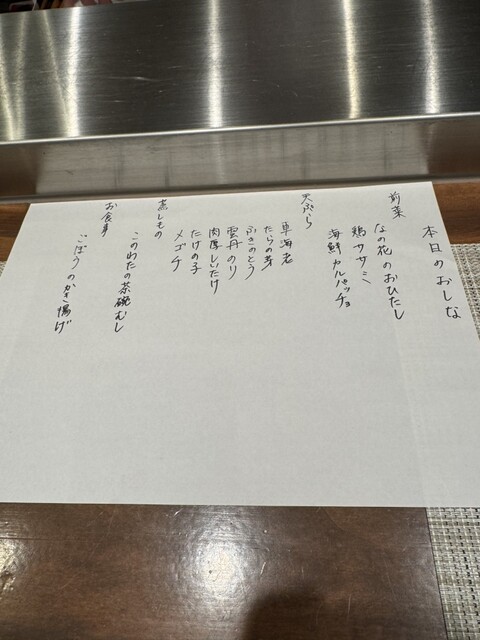 本日のおしな
前菜
なの花のおひたし
鶏ササミ
海鮮カルパッチョ
天ぷら
車海老
たらの芽
ふきのとう
雲丹のり
肉厚しいたけ
たけの子
メゴチ
蒸しもの
このわたの茶碗むし
お食事
ごぼうのかき揚げ